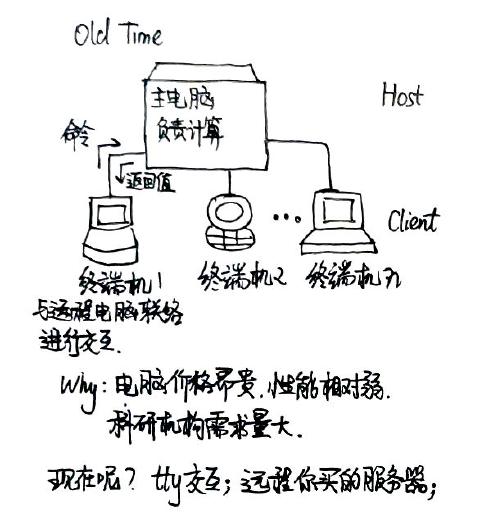 Old Time
主电脑
负责计算
Host
命令
返回值
Client
终端机1
终端机2
...
终端机n
与远程电脑联络
进行交互.
Why: 电脑价格昂贵, 性能相对弱.
科研机构需求量大.
现在呢? tty交互; 远程你买的服务器;